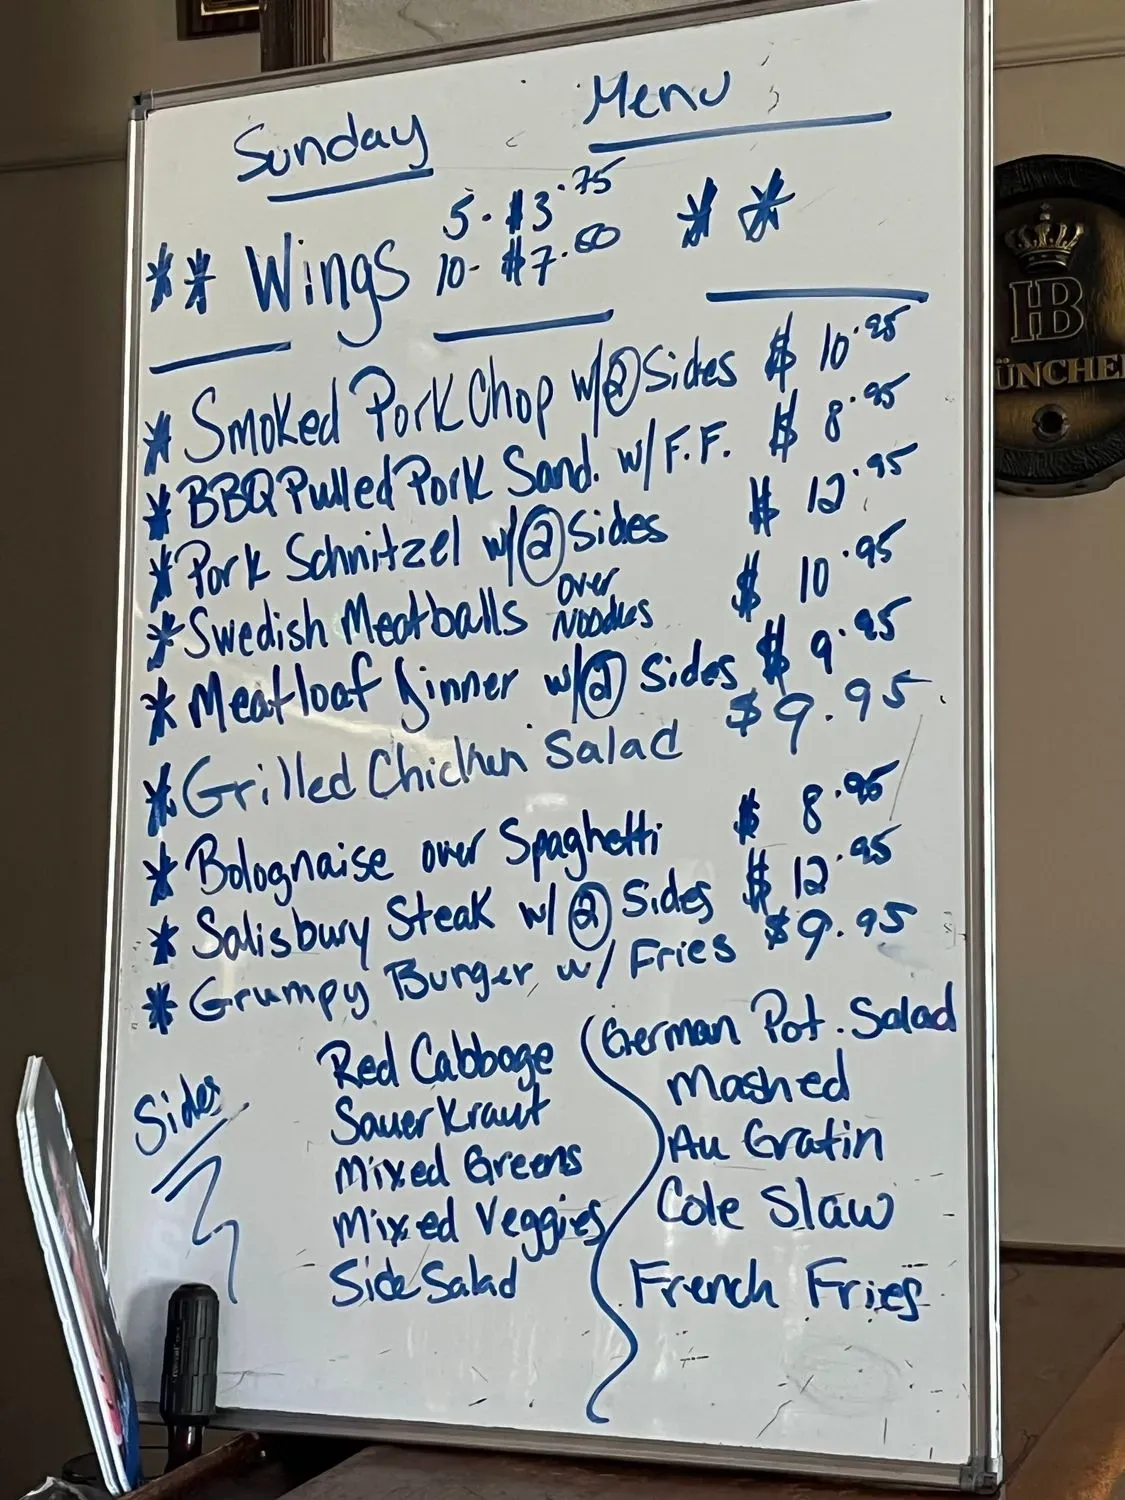 Sunday Menu
5 - $3.75
** Wings 10 - $7.50 **
* Smoked Pork Chop w/ 2 Sides $ 10.95
* BBQ Pulled Pork Sand. w/ F.F. $ 8.95
* Pork Schnitzel w/ 2 Sides $ 12.95
* Swedish Meatballs over Noodles $ 10.95
* Meatloaf Dinner w/ 2 Sides $ 9.95
* Grilled Chicken Salad $9.95
* Bolognaise over Spaghetti $ 8.95
* Salisbury Steak w/ 2 Sides $ 12.95
* Grumpy Burger w/ Fries $9.95
Sides
Red Cabbage
Sauerkraut
Mixed Greens
Mixed Veggies
Side Salad
German Pot. Salad
Mashed
Au Gratin
Cole Slaw
French Fries
HB
MÜNCHEN